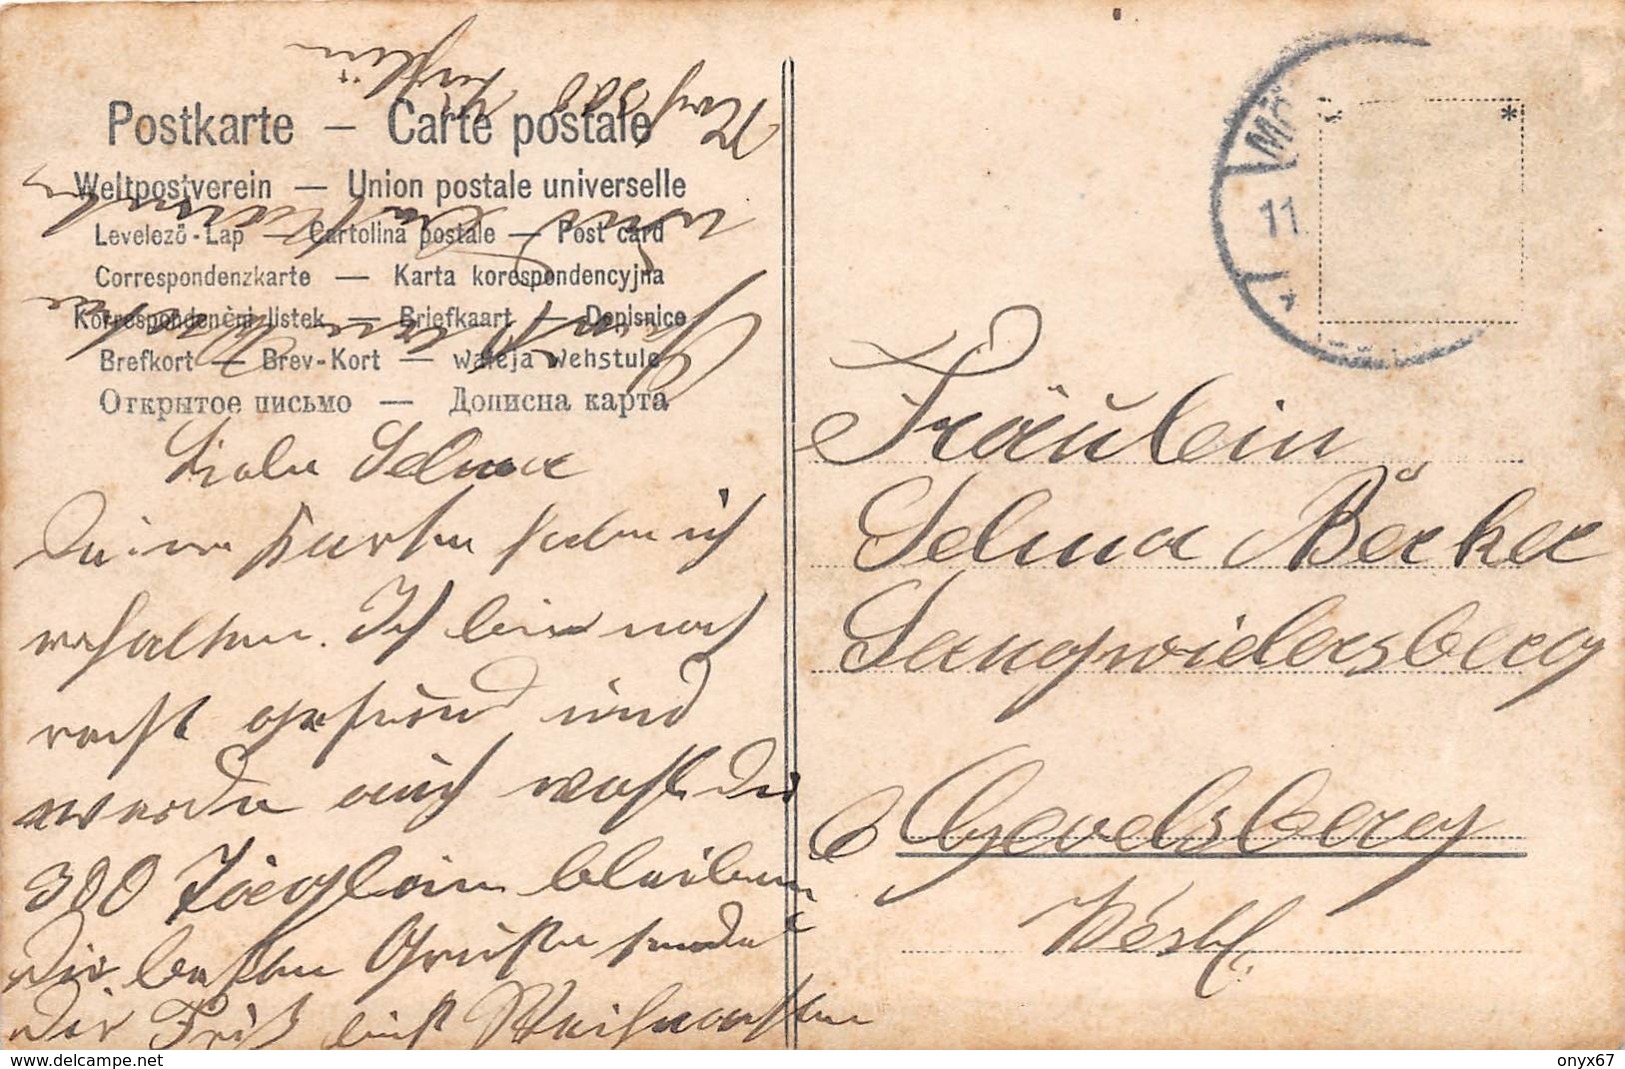 Postkarte — Carte postale
Weltpostverein — Union postale universelle
Levelező-Lap — Cartolina postale — Post card
Correspondenzkarte — Karta korespondencyjna
Korrespondenční listek — Briefkaart — Dopisnice
Brefkort — Brev-Kort — Wateja Wehstule
Открытое письмо — Дописна карта
Liebe Selma
Deine Karten habe ich
erhalten. Ich bin noch
recht gesund und
werde auch wohl die
300 bleiben
die besten Grüße sendet
Dir Fritz bist Weihnachten
Noch 300
MÖ
11
Fräulein
Selma Becker
Gevelsberg
Westf.
delcampe.net
onyx67